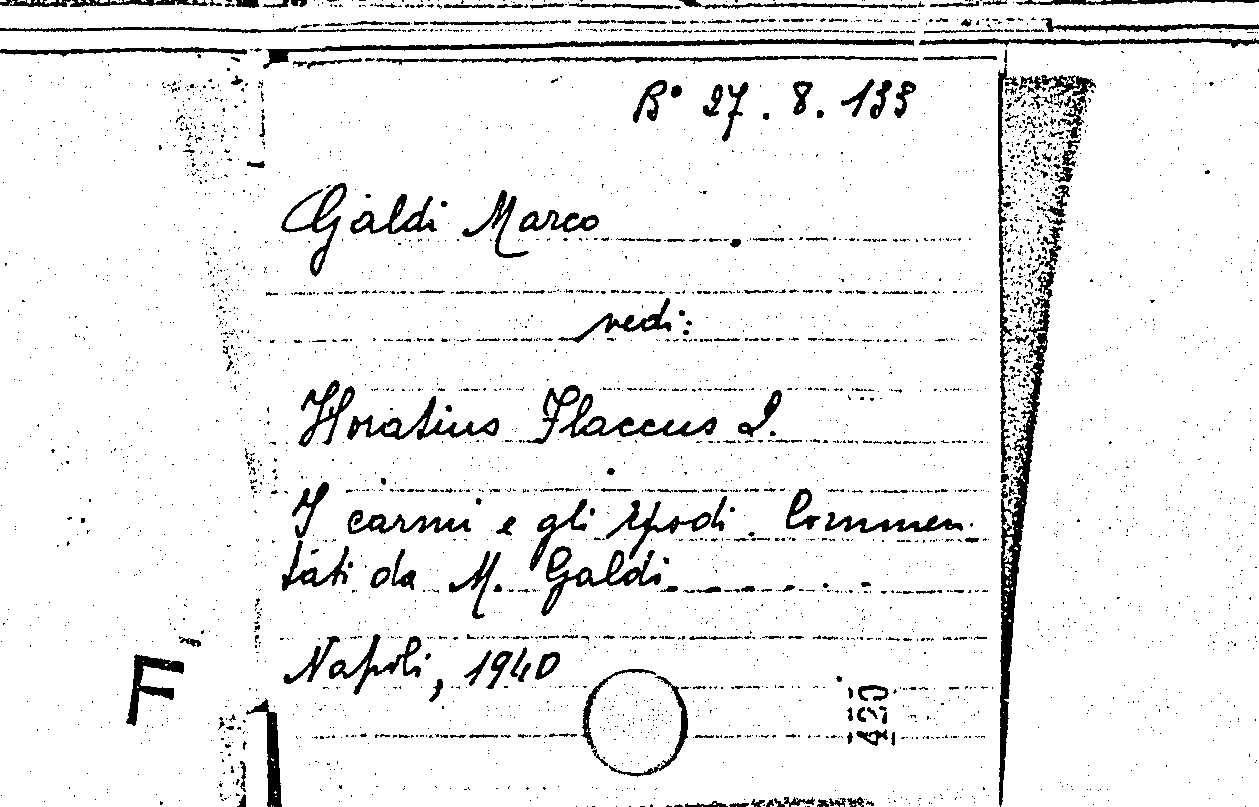 B° 27.8.133
Galdi Marco
vedi:
Horatius Flaccus Q.
I carmi e gli Epodi. Commen-
tati da M. Galdi.......
Napoli, 1940
F
420